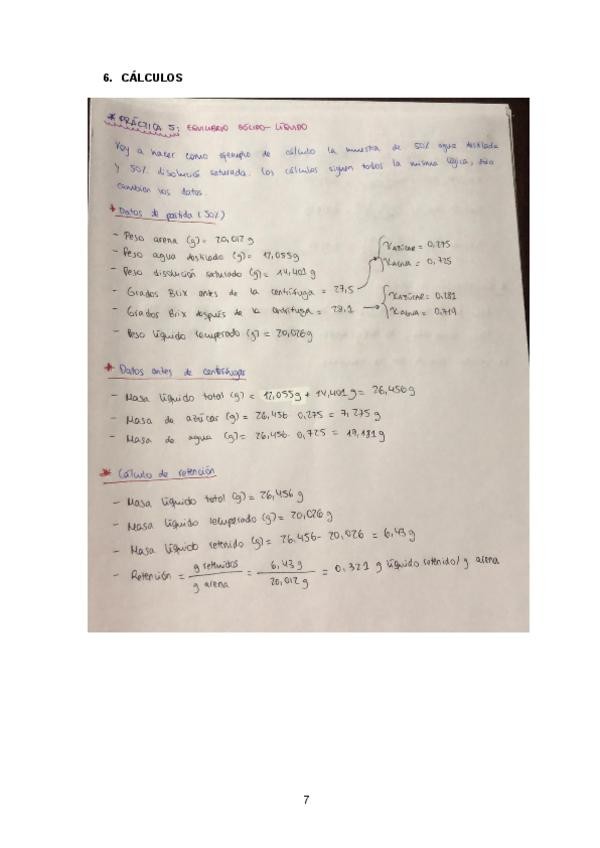 6. CÁLCULOS
* PRÁCTICA 5: EQUILIBRIO SÓLIDO-LÍQUIDO
Voy a hacer como ejemplo de cálculo la muestra de 50% agua destilada
y 50% disolución saturada. Los cálculos siguen todos la misma lógica, solo
cambian los datos.
* Datos de partida (50%)
- Peso arena (g) = 20,012 g
- Peso agua destilada (g) = 12,055g
- Peso disolución saturada (g) = 14,401 g
- Grados Brix antes de la centrífuga = 27,5 → { XAZÚCAR = 0,275
XAGUA = 0,725
- Grados Brix después de la centrífuga = 28,1 → { XAZÚCAR = 0,281
XAGUA = 0,719
- Peso líquido recuperado (g) = 20,026g
* Datos antes de centrifugar
- Masa líquido total (g) = 12,055g + 14,401 g = 26,456 g
- Masa de azúcar (g) = 26,456 · 0,275 = 7,275 g
- Masa de agua (g) = 26,456 · 0,725 = 19,181 g
* Cálculo de retención
- Masa líquido total (g) = 26,456 g
- Masa líquido recuperado (g) = 20,026 g
- Masa líquido retenido (g) = 26,456 - 20,026 = 6,43 g
- Retención = g retenidos / g arena = 6,43 g / 20,012 g = 0,321 g líquido retenido / g arena
7